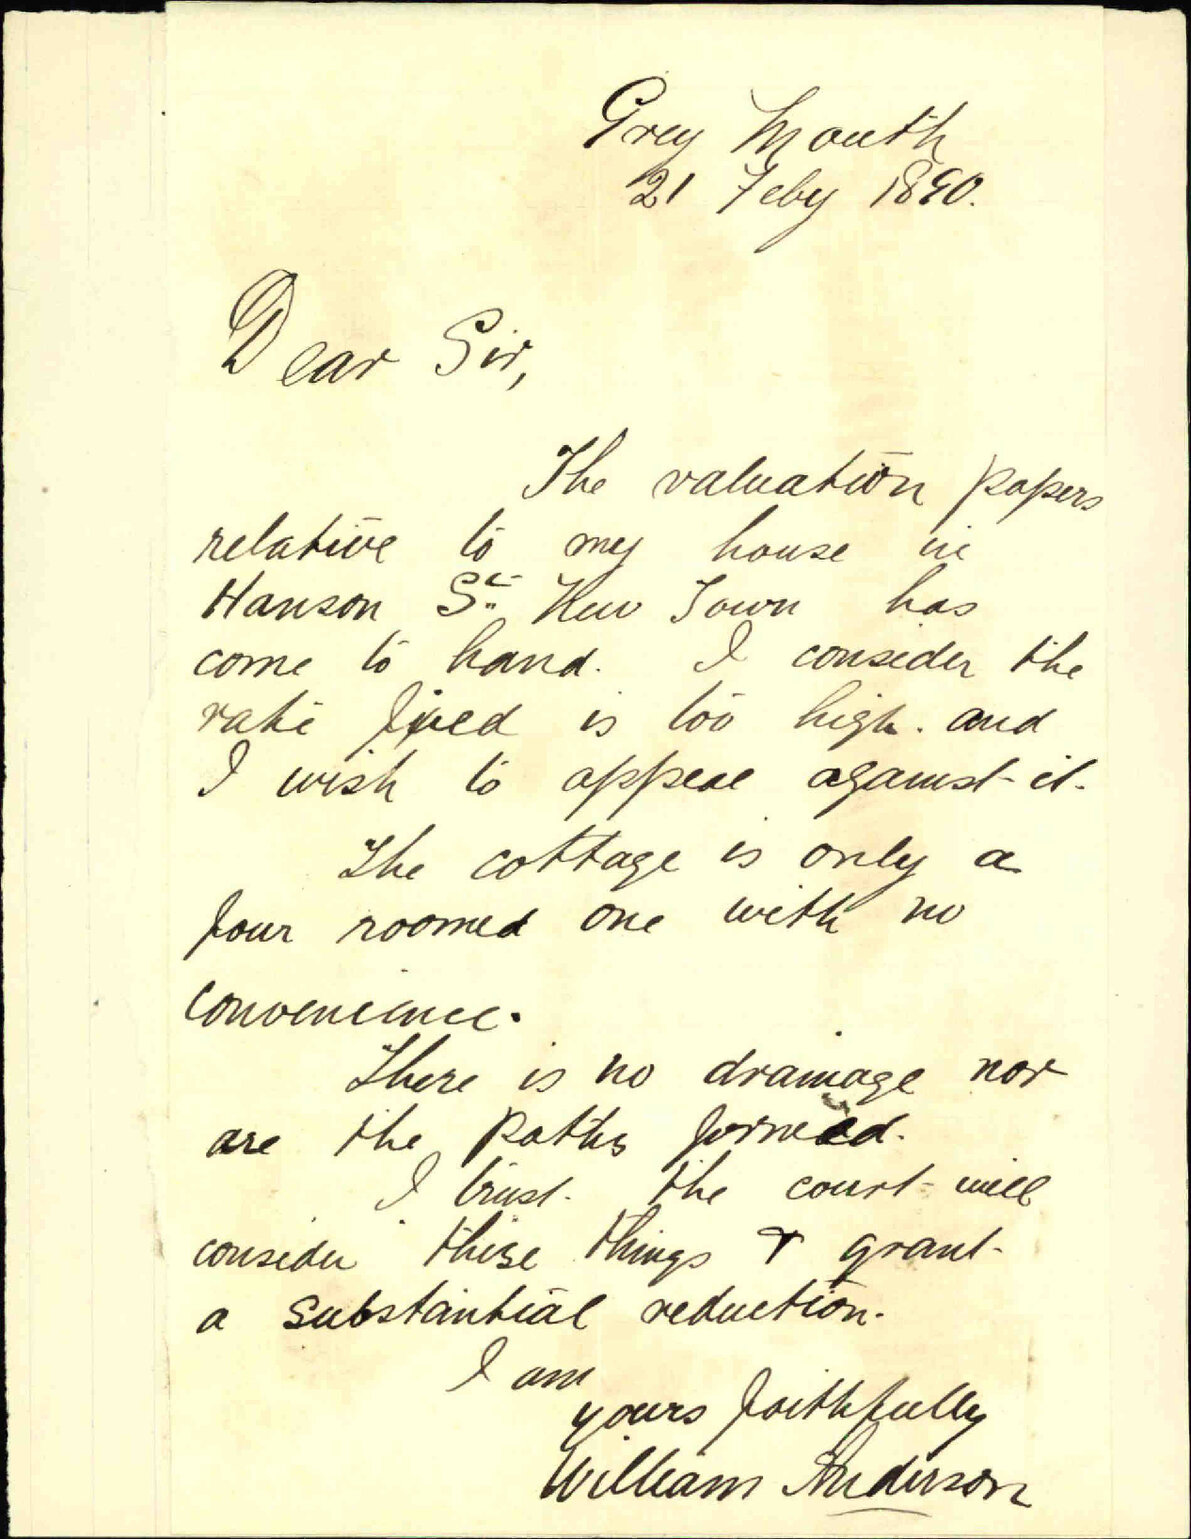 Grey Mouth
21 Feby 1890.
Dear Sir,
The valuation papers
relative to my house in
Hanson St. New Town has
come to hand. I consider the
rate fixed is too high. and
I wish to appeal against it.
The cottage is only a
four roomed one with no
convenience.
There is no drainage nor
are the paths formed.
I trust the court will
consider these things & grant
a substantial reduction.
I am
yours faithfully
William Anderson